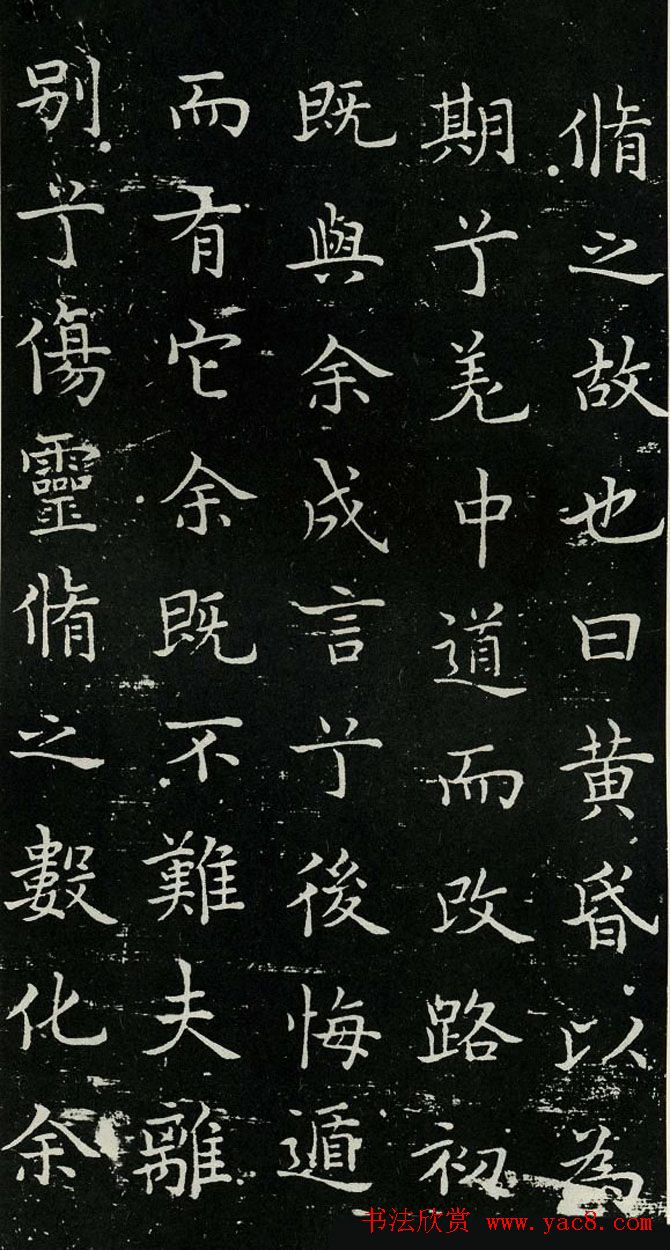 脩之故也曰黄昏以為
期兮羌中道而改路初
既與余成言兮後悔遁
而有它余既不難夫離
別兮傷靈脩之數化余
书法欣赏 www.yac8.com